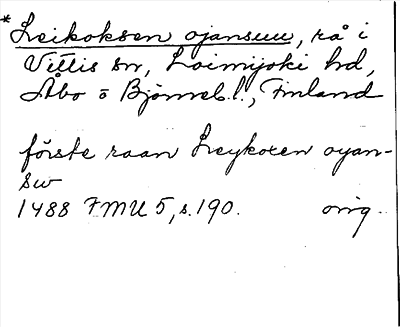 *Leikoksen ojansuu, rå i
Vittis sn, Loimijoki hd,
Åbo o Björneb. l., Finland
förste raan Leykoxen oyan-
sw
1488 FMU 5, s. 190. orig.